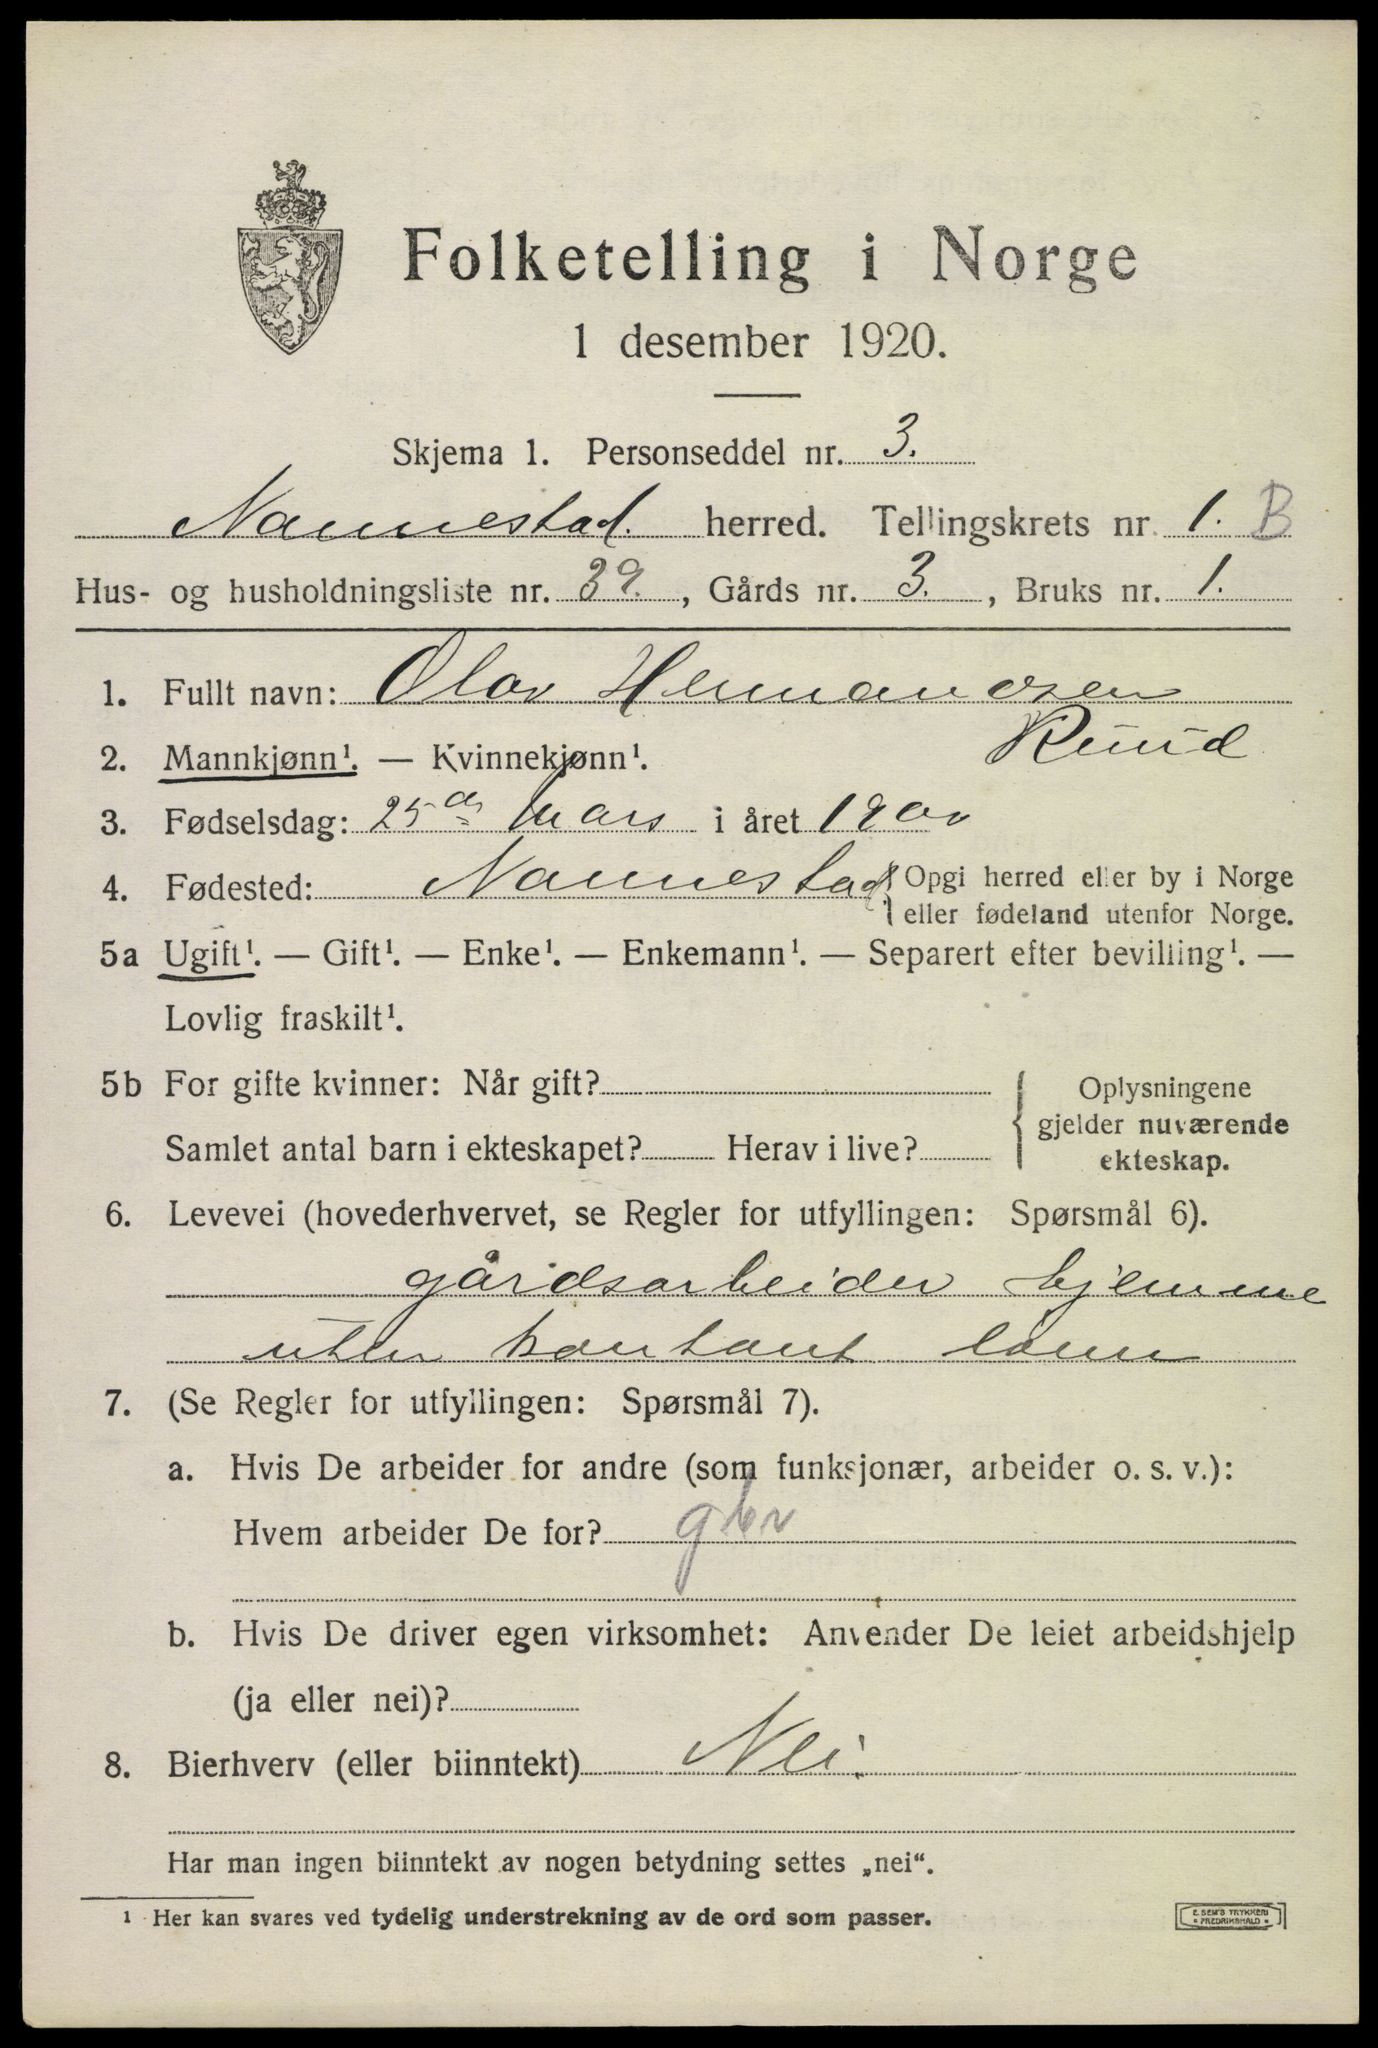 Folketelling i Norge
1 desember 1920.
Skjema 1. Personseddel nr. 3.
Nannestad. herred. Tellingskrets nr. 1. B
Hus- og husholdningsliste nr. 39., Gårds nr. 3., Bruks nr. 1.
1. Fullt navn: Olav Hermansen
Ruud
2. Mannkjønn¹. — Kvinnekjønn¹.
3. Fødselsdag: 25de mars i året 1900
4. Fødested: Nannestad. { Opgi herred eller by i Norge
eller fødeland utenfor Norge.
5a Ugift¹. — Gift¹. — Enke¹. — Enkemann¹. — Separert efter bevilling¹. —
Lovlig fraskilt¹.
5b For gifte kvinner: Når gift?
Samlet antal barn i ekteskapet? Herav i live?
{ Oplysningene
gjelder nuværende
ekteskap.
6. Levevei (hovederhvervet, se Regler for utfyllingen: Spørsmål 6).
gårdsarbeider hjemme
uten kontant lønn
7. (Se Regler for utfyllingen: Spørsmål 7).
a. Hvis De arbeider for andre (som funksjonær, arbeider o. s. v.):
Hvem arbeider De for? gbr
b. Hvis De driver egen virksomhet: Anvender De leiet arbeidshjelp
(ja eller nei)?
8. Bierhverv (eller biinntekt) Nei.
Har man ingen biinntekt av nogen betydning settes „nei“.
¹ Her kan svares ved tydelig understrekning av de ord som passer.
E. SEM'S TRYKKERI
• FREDRIKSHALD •